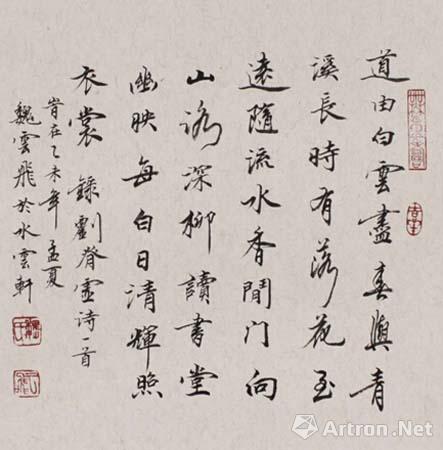 道由白雲盡春與青
溪長時有落花至
遠隨流水香閒门向
山路深柳讀書堂
幽映每白日清輝照
衣裳 錄劉脊虛诗一首
旹在乙未年孟夏
魏雲飛於水雲軒
Art
Artron.Net